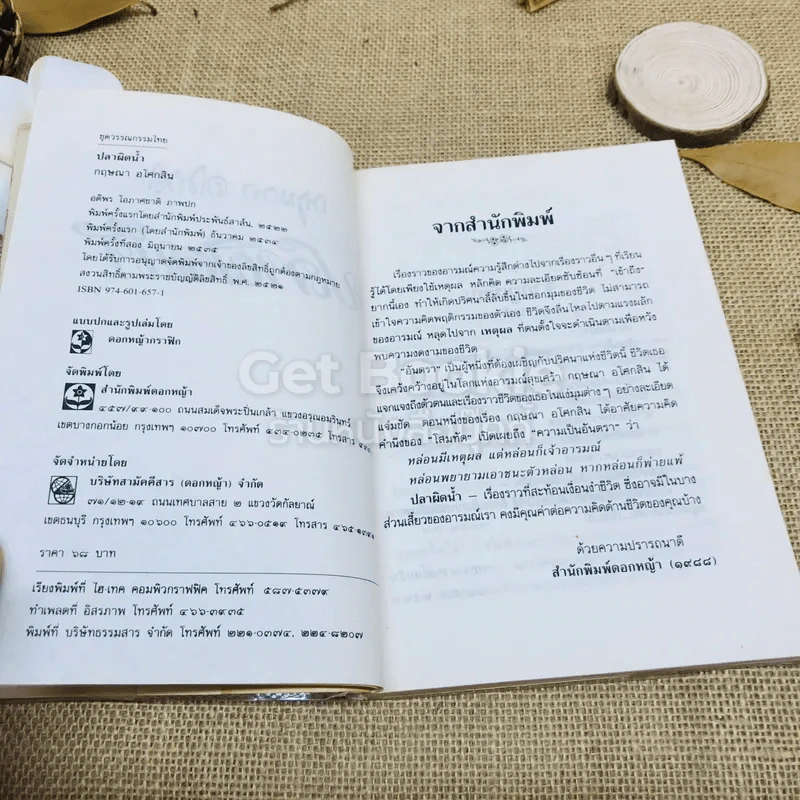 ชุดวรรณกรรมไทย
ปลาผิดน้ำ
กฤษณา อโศกสิน
อดิพร โอภาศชาติ ภาพปก
พิมพ์ครั้งแรกโดยสำนักพิมพ์ประพันธ์สาส์น. ๒๕๒๒
พิมพ์ครั้งแรก (โดยสำนักพิมพ์) ธันวาคม ๒๕๓๔
พิมพ์ครั้งที่สอง มิถุนายน ๒๕๓๕
โดยได้รับการอนุญาตจัดพิมพ์จากเจ้าของลิขสิทธิ์ถูกต้องตามกฎหมาย
สงวนสิทธิ์ตามพระราชบัญญัติลิขสิทธิ์ พ.ศ. ๒๕๒๑
ISBN 974-601-657-1
แบบปกและรูปเล่มโดย
ดอกหญ้ากราฟิก
จัดพิมพ์โดย
สำนักพิมพ์ดอกหญ้า
๔๕๗/๙๙-๑๐๐ ถนนสมเด็จพระปิ่นเกล้า แขวงอรุณอมรินทร์
เขตบางกอกน้อย กรุงเทพฯ ๑๐๗๐๐ โทรศัพท์ ๔๓๔-๐๒๓๕ โทรสาร
จัดจำหน่ายโดย
บริษัทสามัคคีสาร (ดอกหญ้า) จำกัด
๗๑/๑๒-๑๙ ถนนเทศบาลสาย ๒ แขวงวัดกัลยาณ์
เขตธนบุรี กรุงเทพฯ ๑๐๖๐๐ โทรศัพท์ ๔๖๖-๐๕๑๙ โทรสาร
ราคา ๖๘ บาท
เรียงพิมพ์ที่ ไฮ-เทค คอมพิวกราฟฟิค โทรศัพท์ ๕๘๗-๕๓๗๙
ทำเพลตที่ อิสรภาพ โทรศัพท์ ๔๖๖-๓๙๓๕
พิมพ์ที่ บริษัทธรรมสาร จำกัด โทรศัพท์ ๒๒๑-๐๓๗๔, ๒๒๔-๘๒๐๗
จากสำนักพิมพ์
เรื่องราวของอารมณ์ความรู้สึกต่างไปจากเรื่องราวอื่นๆ ที่เรียน
รู้ได้โดยเพียงใช้เหตุผล หลักคิด ความละเอียดซับซ้อนที่ "เข้าถึง"
ยากนี้เอง ทำให้เกิดปริศนาลี้ลับขึ้นในซอกมุมของชีวิต ไม่สามารถ
เข้าใจความคิดพฤติกรรมของตัวเอง ชีวิตจึงลื่นไหลไปตามแรงผลัก
ของอารมณ์ หลุดไปจาก เหตุผล ที่ตนตั้งใจจะดำเนินตามเพื่อหวัง
พบความงดงามของชีวิต
"อันตรา" เป็นผู้หนึ่งที่ต้องเผชิญกับปริศนาแห่งชีวิตนี้ ชีวิตเธอ
จึงเคว้งคว้างอยู่ในโลกแห่งอารมณ์สุขเศร้า กฤษณา อโศกสิน ได้
แจกแจงถึงตัวตนและเรื่องราวชีวิตของเธอในแง่มุมต่างๆ อย่างละเอียด
แจ่มชัด ตอนหนึ่งของเรื่อง กฤษณา อโศกสิน ได้อาศัยความคิด
คำนึงของ "โสมทัต" เปิดเผยถึง "ความเป็นอันตรา" ว่า
หล่อนมีเหตุผล แต่หล่อนก็เจ้าอารมณ์
หล่อนพยายามเอาชนะตัวหล่อน หากหล่อนก็พ่ายแพ้
ปลาผิดน้ำ – เรื่องราวที่สะท้อนเงื่อนงำชีวิต ซึ่งอาจมีในบาง
ส่วนเสี้ยวของอารมณ์เรา คงมีคุณค่าต่อความคิดด้านชีวิตของคุณบ้าง
ด้วยความปรารถนาดี
สำนักพิมพ์ดอกหญ้า (๑๙๘๘)
Get Bookie